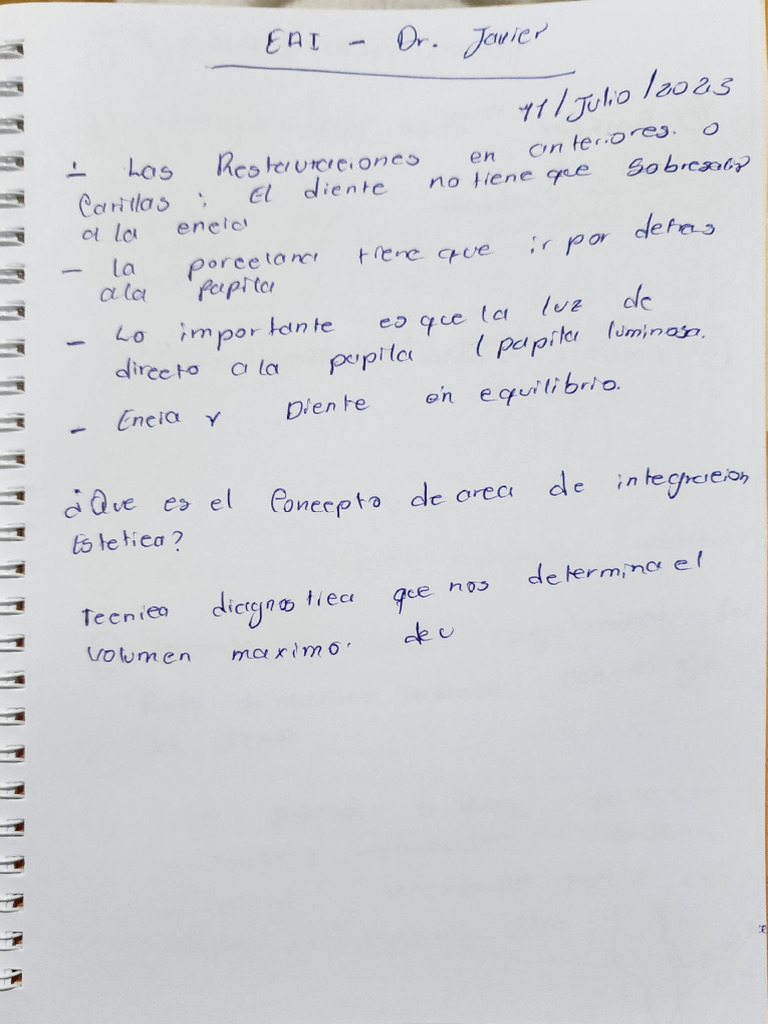 EAI - Dr. Javier
11/Julio/2023
- Las Restauraciones en anteriores. o
Carillas : El diente no tiene que Sobresalir
a la encia
- la porcelana tiene que ir por detras
a la papila
- Lo importante es que la luz de
directo a la papila ( papila luminosa.
- Encia y Diente en equilibrio.
¿Que es el Concepto de area de integracion
Estetica?
Tecnica diagnostica que nos determina el
volumen maximo. de